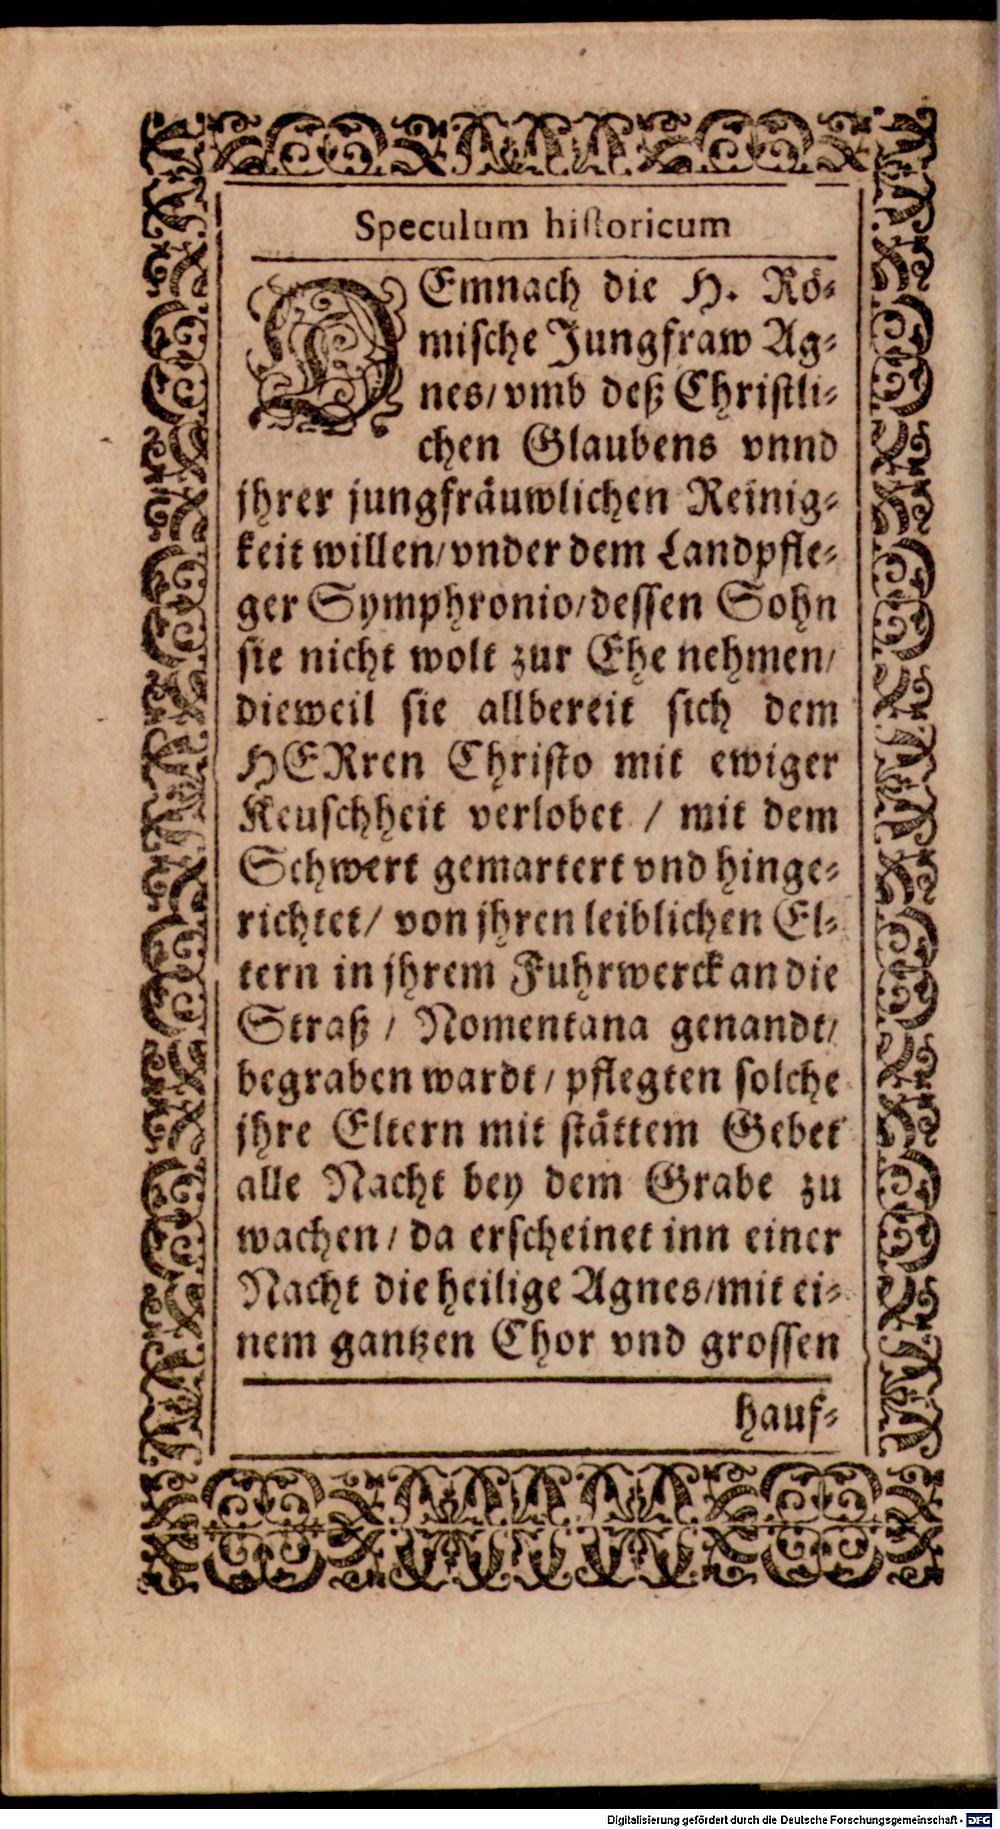 Speculum hiſtoricum
DEmnach die H. Rö⸗
miſche Jungfraw Ag⸗
nes/ vmb deß Chriſtli⸗
chen Glaubens vnnd
jhrer jungfräuwlichen Reinig⸗
keit willen/ vnder dem Landpfle⸗
ger Symphronio/ deſſen Sohn
ſie nicht wolt zur Ehe nehmen/
dieweil ſie allbereit ſich dem
HERren Chriſto mit ewiger
Keuſchheit verlobet / mit dem
Schwert gemartert vnd hinge⸗
richtet/ von jhren leiblichen El⸗
tern in jhrem Fuhrwerck an die
Straß / Nomentana genandt/
begraben wardt / pflegten ſolche
jhre Eltern mit ſtättem Gebet
alle Nacht bey dem Grabe zu
wachen / da erſcheinet inn einer
Nacht die heilige Agnes/ mit ei⸗
nem gantzen Chor vnd groſſen
hauf⸗
Digitalisierung gefördert durch die Deutsche Forschungsgemeinschaft - DFG